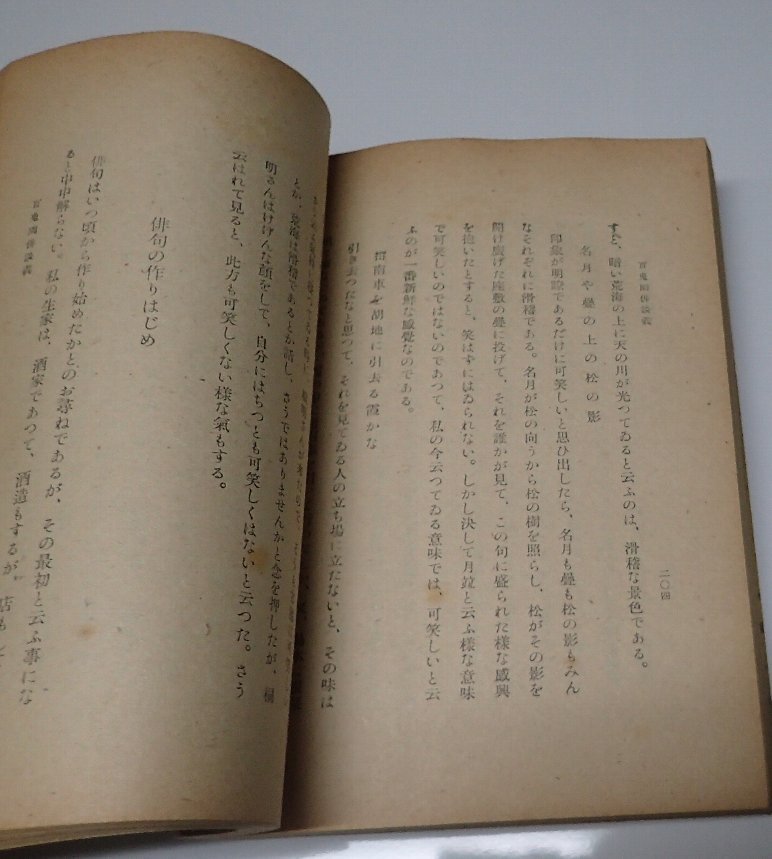 百鬼園俳談義
二〇四
すと、暗い荒海の上に天の川が光つてゐると云ふのは、滑稽な景色である。
名月や疊の上の松の影
印象が明瞭であるだけに可笑しいと思ひ出したら、名月も疊も松の影もみん
なそれぞれに滑稽である。名月が松の向うから松の樹を照らし、松がその影を
開け廣げた座敷の疊に投げて、それを誰かが見て、この句に盛られた樣な感興
を抱いたとすると、笑はずにはゐられない。しかし決して月竝と云ふ樣な意味
で可笑しいのではないのであつて、私の今云つてゐる意味では、可笑しいと云
ふのが一番新鮮な感覺なのである。
指南車を胡地に引去る霞かな
引き去つたなと思つて、それを見てゐる人の立ち場に立たないと、その味は
とか、荒海は滑稽であるとか話し、さうではありませんかと念を押したが、桐
明さんはけげんな顔をして、自分にはちつとも可笑しくはないと云つた。さう
云はれて見ると、此方も可笑しくない樣な氣もする。
俳句の作りはじめ
俳句はいつ頃から作り始めたかとのお尋ねであるが、その最初と云ふ事にな
ると中中解らない。私の生家は、酒家であつて、酒造もするが、店も
百鬼園俳談義